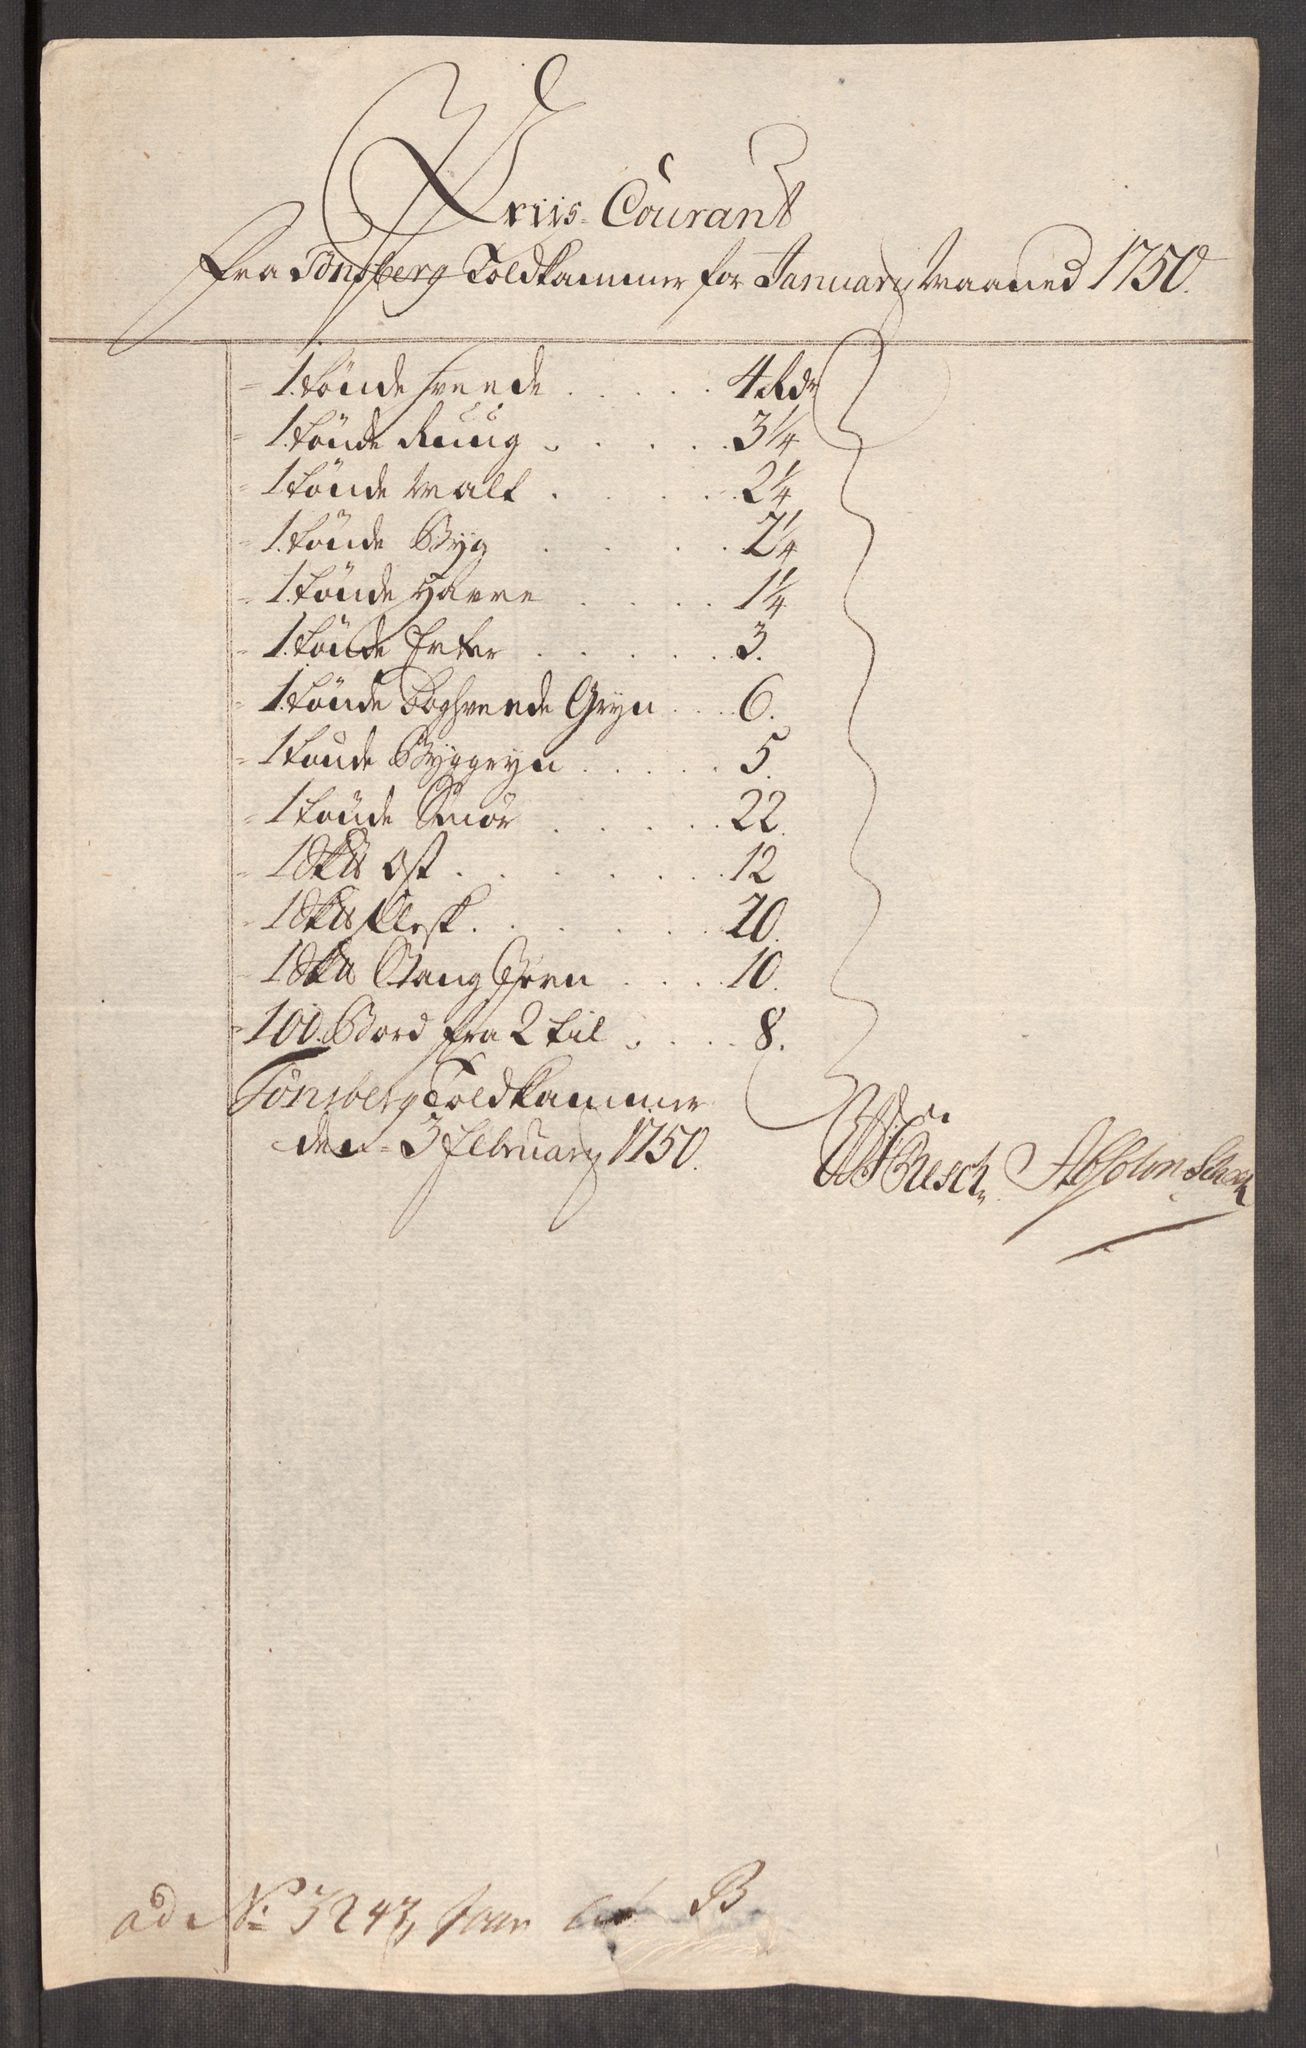 Priis-Courant
fra Tønsberg Toldkammer for January Maaned 1750.
1. tønde Hveede . . . . . 4 Rdr
1. tønde Ruug . . . . . 3 1/4
1. tønde Malt . . . . . 2 1/4
1. tønde Byg . . . . 2 1/4
1. tønde Havre . . . . 1 1/4
1. tønde Erter . . . . . 3.
1. tønde Boghveede Gryn . . . 6.
1 tønde Byggryn . . . . . 5.
1 tønde Smør . . . . . 22.
1 Sk℔ Ost . . . . . . . 12
1 Sk℔ Flesk . . . . . . 20.
1 Sk℔ Stang Jern . . . . 10.
100. Bord fra 2 til . . . . 8.
Tønsberg Toldkammer
den 3 February 1750.
Resch Absolon
ad No 3243, B